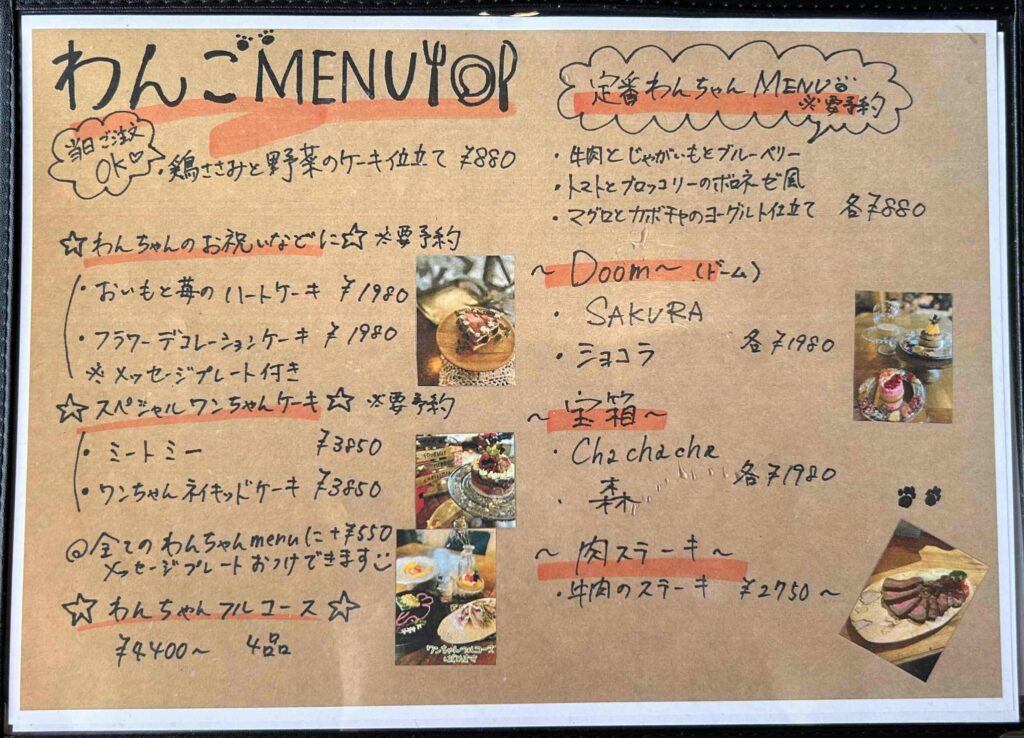 わんごMENU
当日ご注文
OK♡
・鶏ささみと野菜のケーキ仕立て ¥880
☆わんちゃんのお祝いなどに☆ ※要予約
・おいもと苺のハートケーキ ¥1980
・フラワーデコレーションケーキ ¥1980
※メッセージプレート付き
☆スペシャルワンちゃんケーキ☆ ※要予約
・ミートミー ¥3850
・ワンちゃんネイキッドケーキ ¥3850
@全てのわんちゃんmenuに+¥550
メッセージプレートおつけできます
☆わんちゃんフルコース☆
¥4400〜 4品
ワンちゃんフルコース
定番わんちゃんMENU
※要予約
・牛肉とじゃがいもとブルーベリー
・トマトとブロッコリーのボロネーゼ風
・マグロとカボチャのヨーグルト仕立て 各¥880
〜Doom〜(ドーム)
・SAKURA
・ショコラ 各¥1980
〜宝箱〜
・Chachacha
・森 各¥1980
〜肉ステーキ〜
・牛肉のステーキ ¥2750〜